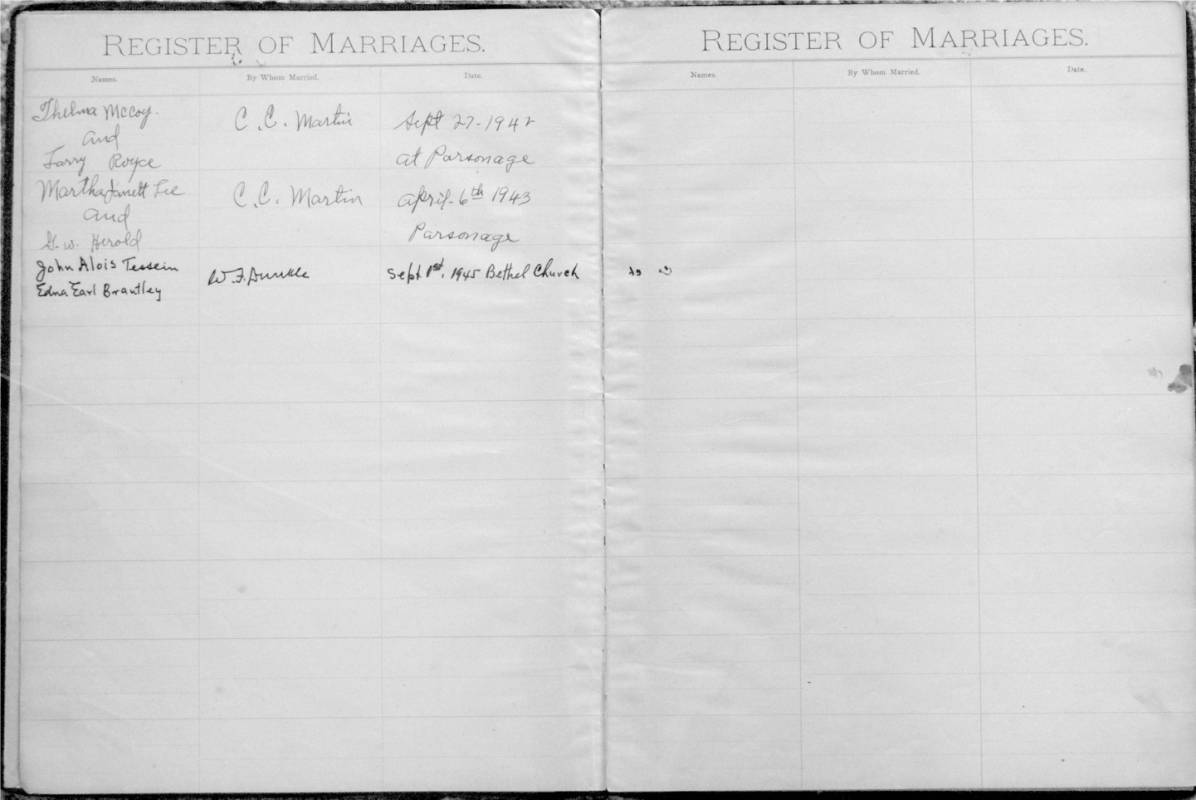 REGISTER OF MARRIAGES.
Names. By Whom Married. Date.
Thelma McCoy. C. C. Martin Sept 27-1942
and
Larry Royce at Parsonage
Martha Lee C. C. Martin April-6th 1943
and
G. W. Herold Parsonage
John Alois Tessein W. F. Dunkle Sept 1st, 1945 Bethel Church
Edna Earl Brantley
REGISTER OF MARRIAGES.
Names. By Whom Married. Date.